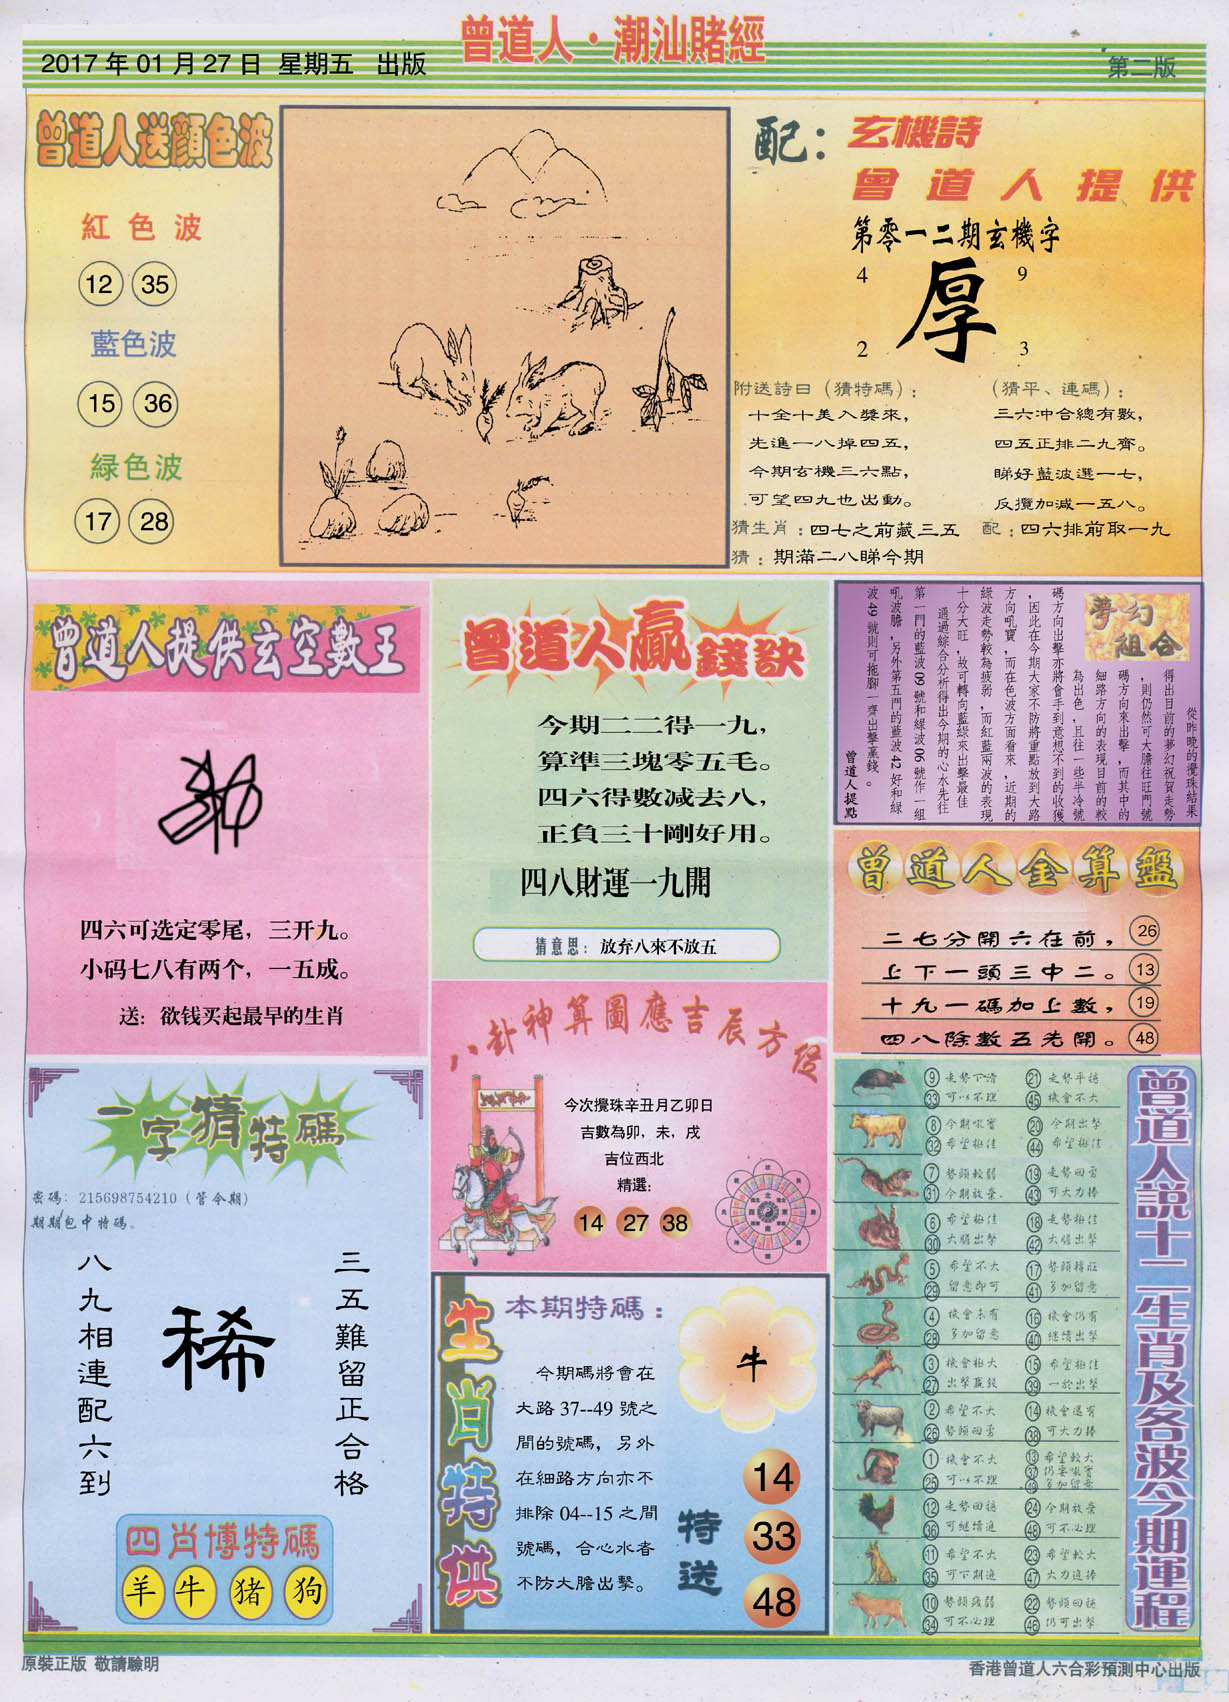 曾道人·潮汕賭經
2017年01月27日 星期五 出版
第二版
曾道人送顏色波
紅色波
12 35
藍色波
15 36
緑色波
17 28
配：玄機詩
曾道人提供
第零一二期玄機字
4 9
厚
2 3
附送詩曰（猜特碼）：
十全十美入獎來，
先進一八掉四五，
今期玄機三六點，
可望四九也出動。
（猜平、連碼）：
三六冲合總有數，
四五正排二九齊。
睇好藍波選一七，
反攬加減一五八。
猜生肖：四七之前藏三五
配：四六排前取一九
猜：期滿二八睇今期
曾道人提供玄空數王
四六可选定零尾，三开九。
小码七八有两个，一五成。
送：欲钱买起最早的生肖
曾道人贏錢訣
今期二二得一九，
算準三塊零五毛。
四六得數減去八，
正負三十剛好用。
四八財運一九開
猜意思：放弃八來不放五
夢幻組合
從昨晚的攪珠結果
得出目前的夢幻祝賀走勢
，則仍然可大膽往旺門號
碼方向來出擊，而其中的
細路方向的表現目前的較
為出色，且往一些半冷號
碼方向出擊亦將會手到意想不到的收獲
，因此在今期大家不防將重點放到大路
方向吼寶，而在色波方面看來，近期的
綠波走勢較為疲弱，而紅藍兩波的表現
十分大旺，故可轉向藍綠來出擊最佳
通過綜合分析得出今期的心水先往
第一門的藍波09號和綠波06號作一組
吼波膽，另外第五門的藍波42好和綠
波49號則可拖腳一齊出擊贏錢。
曾道人提點
曾道人金算盤
二七分開六在前， 26
上下一頭三中二。 13
十九一碼加上數， 19
四八除數五先開。 48
八卦神算圖應吉辰方位
今次攪珠辛丑月乙卯日
吉數為卯，未，戌
吉位西北
精選：
14 27 38
一字猜特碼
密碼：215698754210（管今期）
期期包中特碼。
三五難留正合格
稀
八九相連配六到
四肖博特碼
羊 牛 猪 狗
生肖特供
本期特碼：
今期碼將會在
大路37--49號之
間的號碼，另外
在細路方向亦不
排除04--15之間
號碼，合心水者
不防大膽出擊。
牛
特送
14
33
48
曾道人説十二生肖及各波今期運程
9 走勢下滑 21 走勢平穩
33 可以不理 45 機會不大
8 今期吼寶 20 今期出擊
32 希望極佳 44 希望極佳
7 勢頭較弱 19 走勢回勇
31 今期放棄 43 可大力捧
6 希望極佳 18 走勢極佳
30 大膽出擊 42 大膽出擊
5 希望不大 17 勢頭轉旺
29 留意即可 41 多加留意
4 機會未有 16 機會仍有
28 多加留意 40 繼續出擊
3 機會極大 15 希望極佳
27 出擊贏錢 39 一於出擊
2 希望不大 14 機會還有
26 勢頭回勇 38 可大力捧
1 機會不大 13 希望較大
25 可以不理 37 仍要吼寶
49 多加留意
12 走勢回穩 24 今期放棄
36 可繼續追 48 可不必理
11 希望不大 23 希望較大
35 可下期追 47 大力追捧
10 勢頭疲弱 22 勢頭回穩
34 可不必理 46 仍可出擊
原裝正版 敬請驗明
香港曾道人六合彩預測中心出版